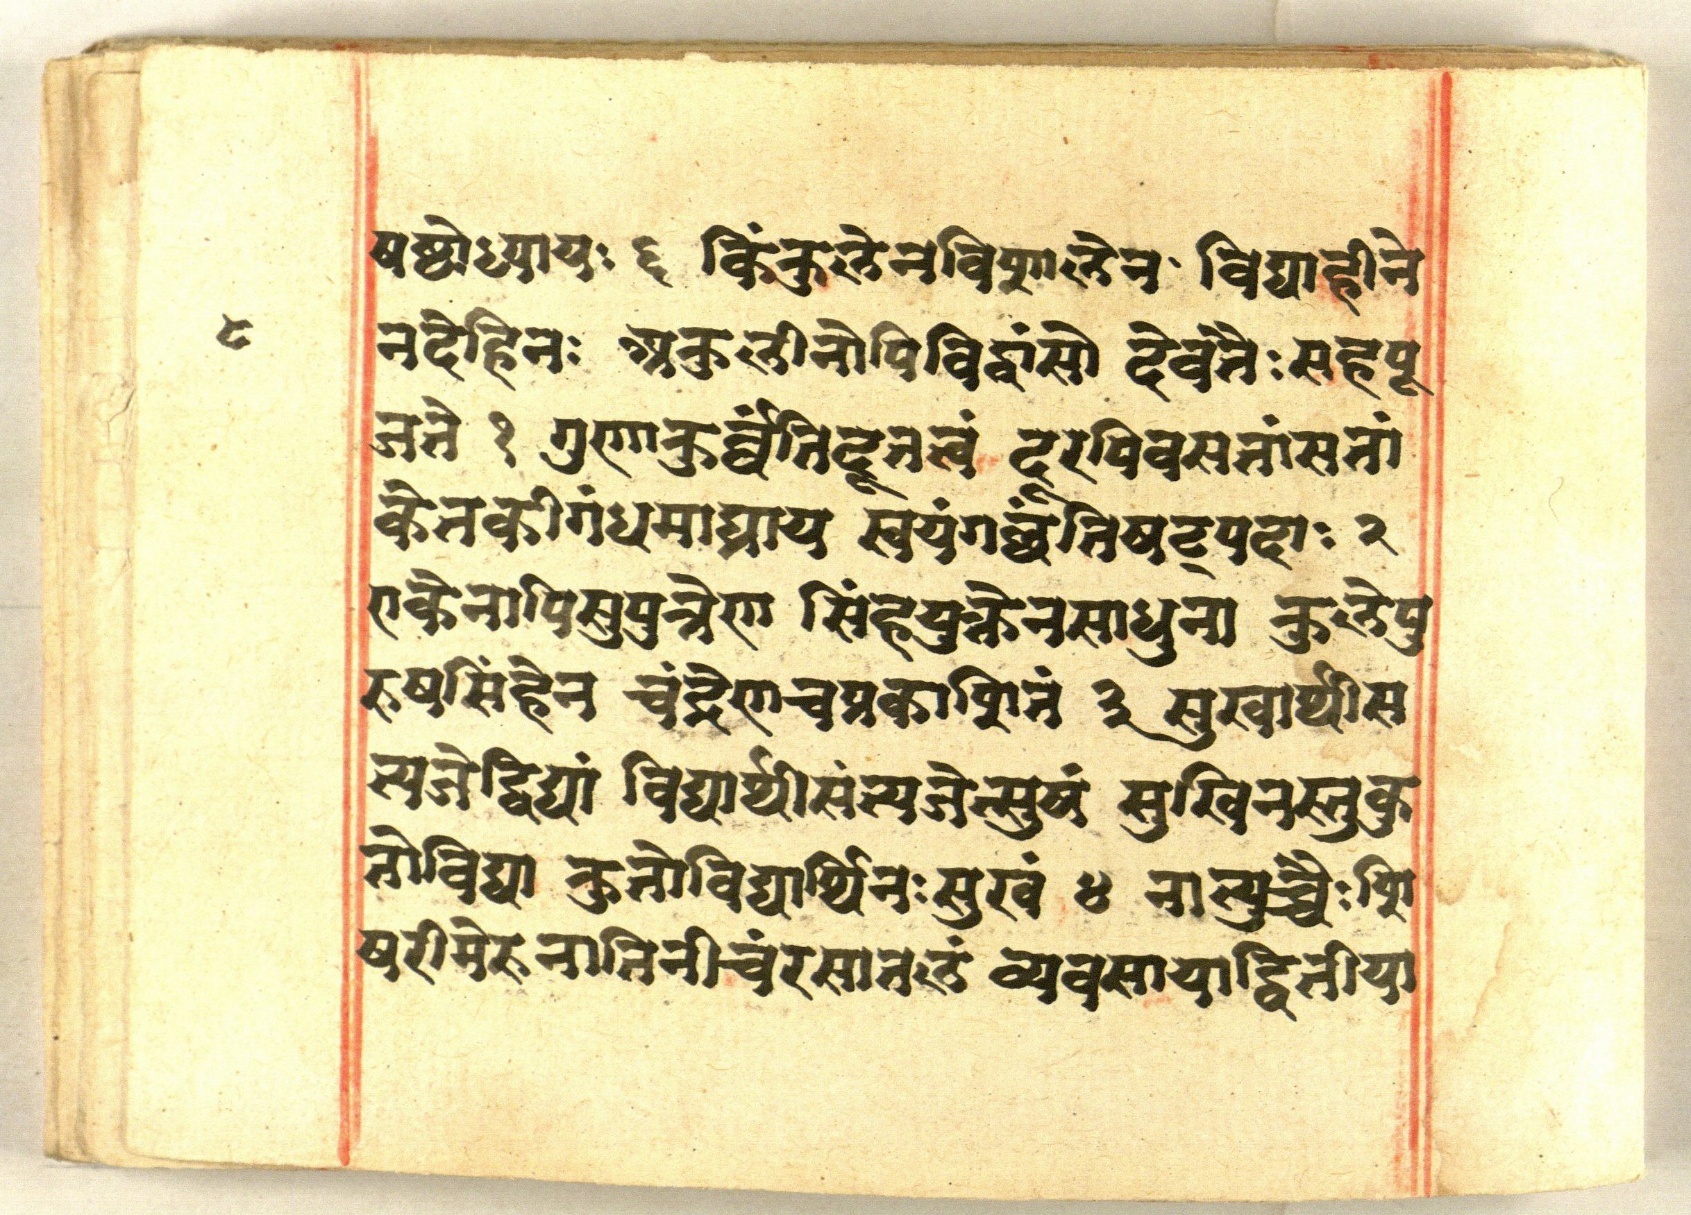 षष्ठोऽध्यायः ६ किंकुलेनविशालेन विद्याहीने
८
नदेहिनः अकुलीनोपिविद्वांसो देवतैःसहपू
जतै १ गुणाकुर्व्वंतिदूतत्वं दूरपिवसतांसतां
केतकीगंधमाघ्राय स्वयंगच्छंतिषट्पदाः २
एकेनापिसुपुत्रेण सिंहयुक्तेनसाधुना कुलेपु
रुषसिंहेन चंद्रेणचप्रकाशितं ३ सुखार्थीस
त्यजेद्विद्यां विद्यार्थीसंत्यजेत्सुषं सुखिनस्तुकु
तोविद्या कुतोविद्यार्थिनःसुखं ४ नात्युच्चैःशि
षरीमेरुनातिनीचंरसातलं व्यवसायाद्वितीया